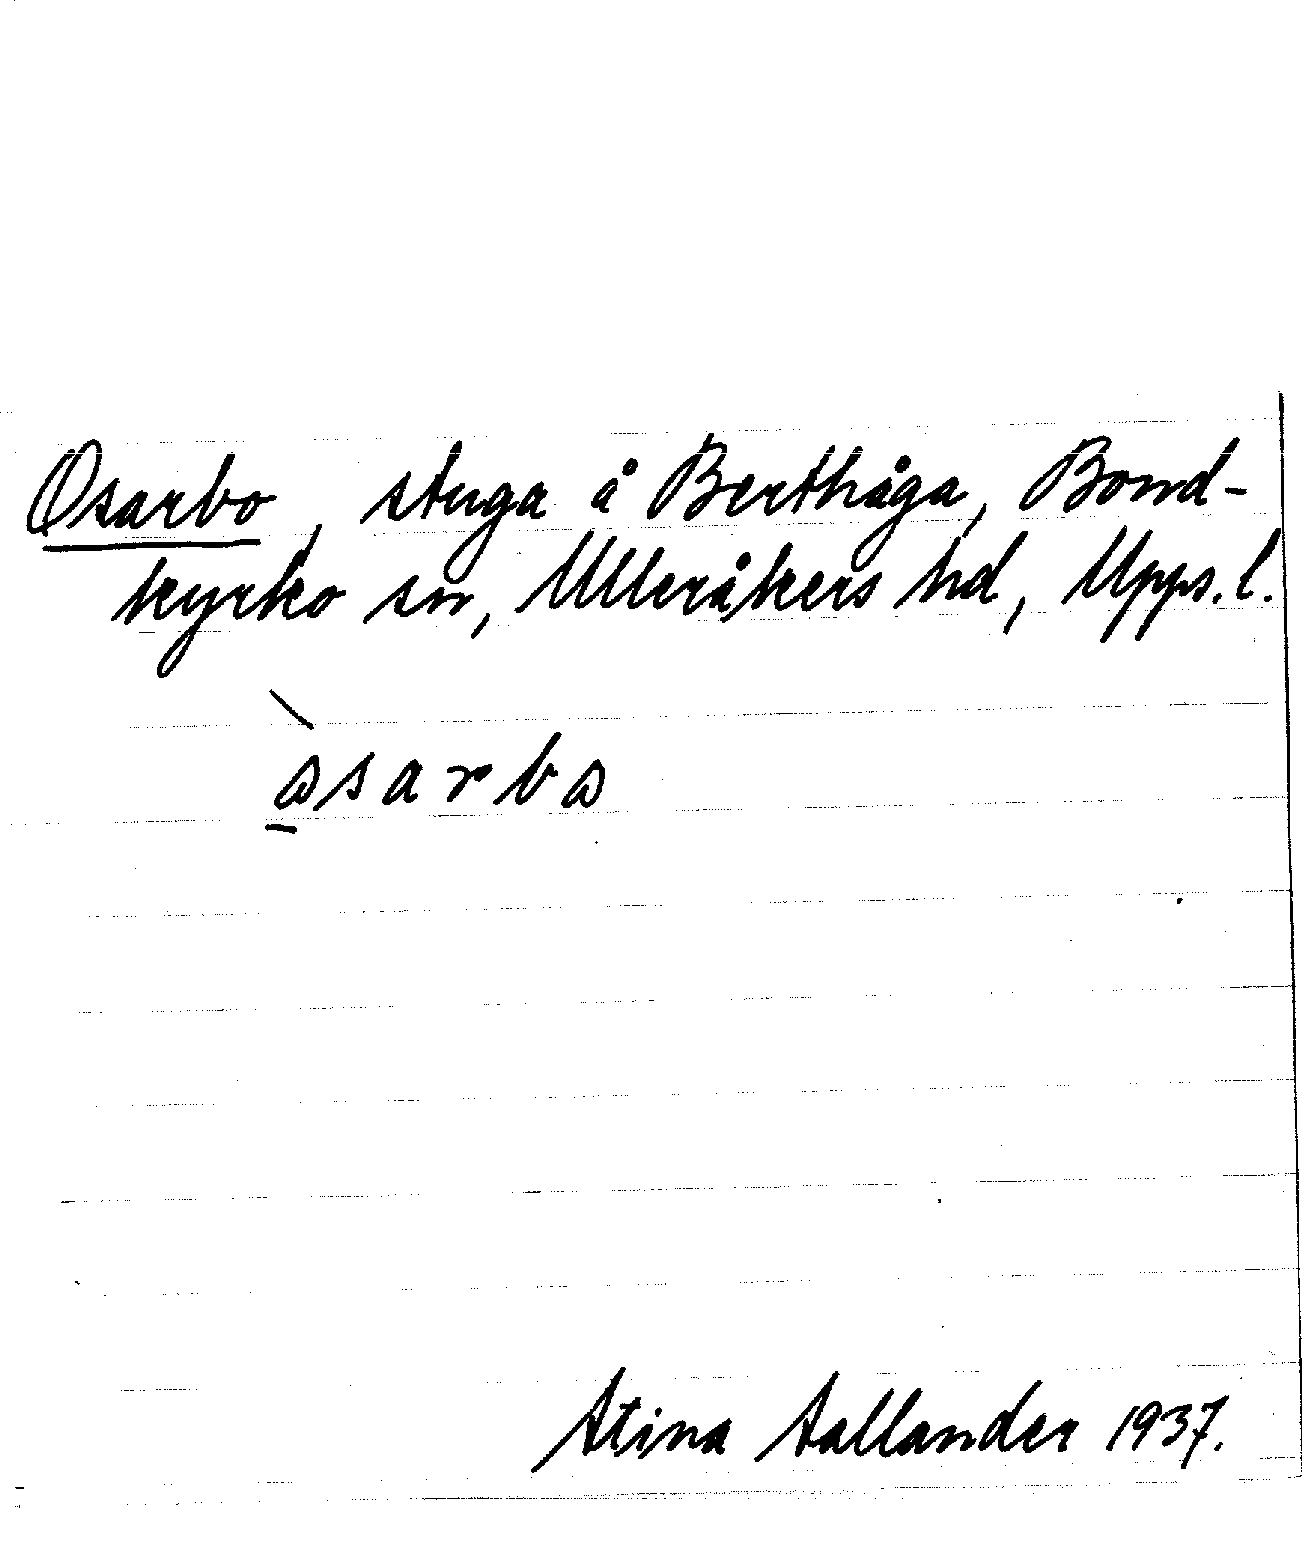 Osarbo, stuga å Berthåga, Bond-
kyrko sn, Ulleråkers hd, Upps. l.
ɷ̱̀sarbɷ
Stina Sallander 1937.